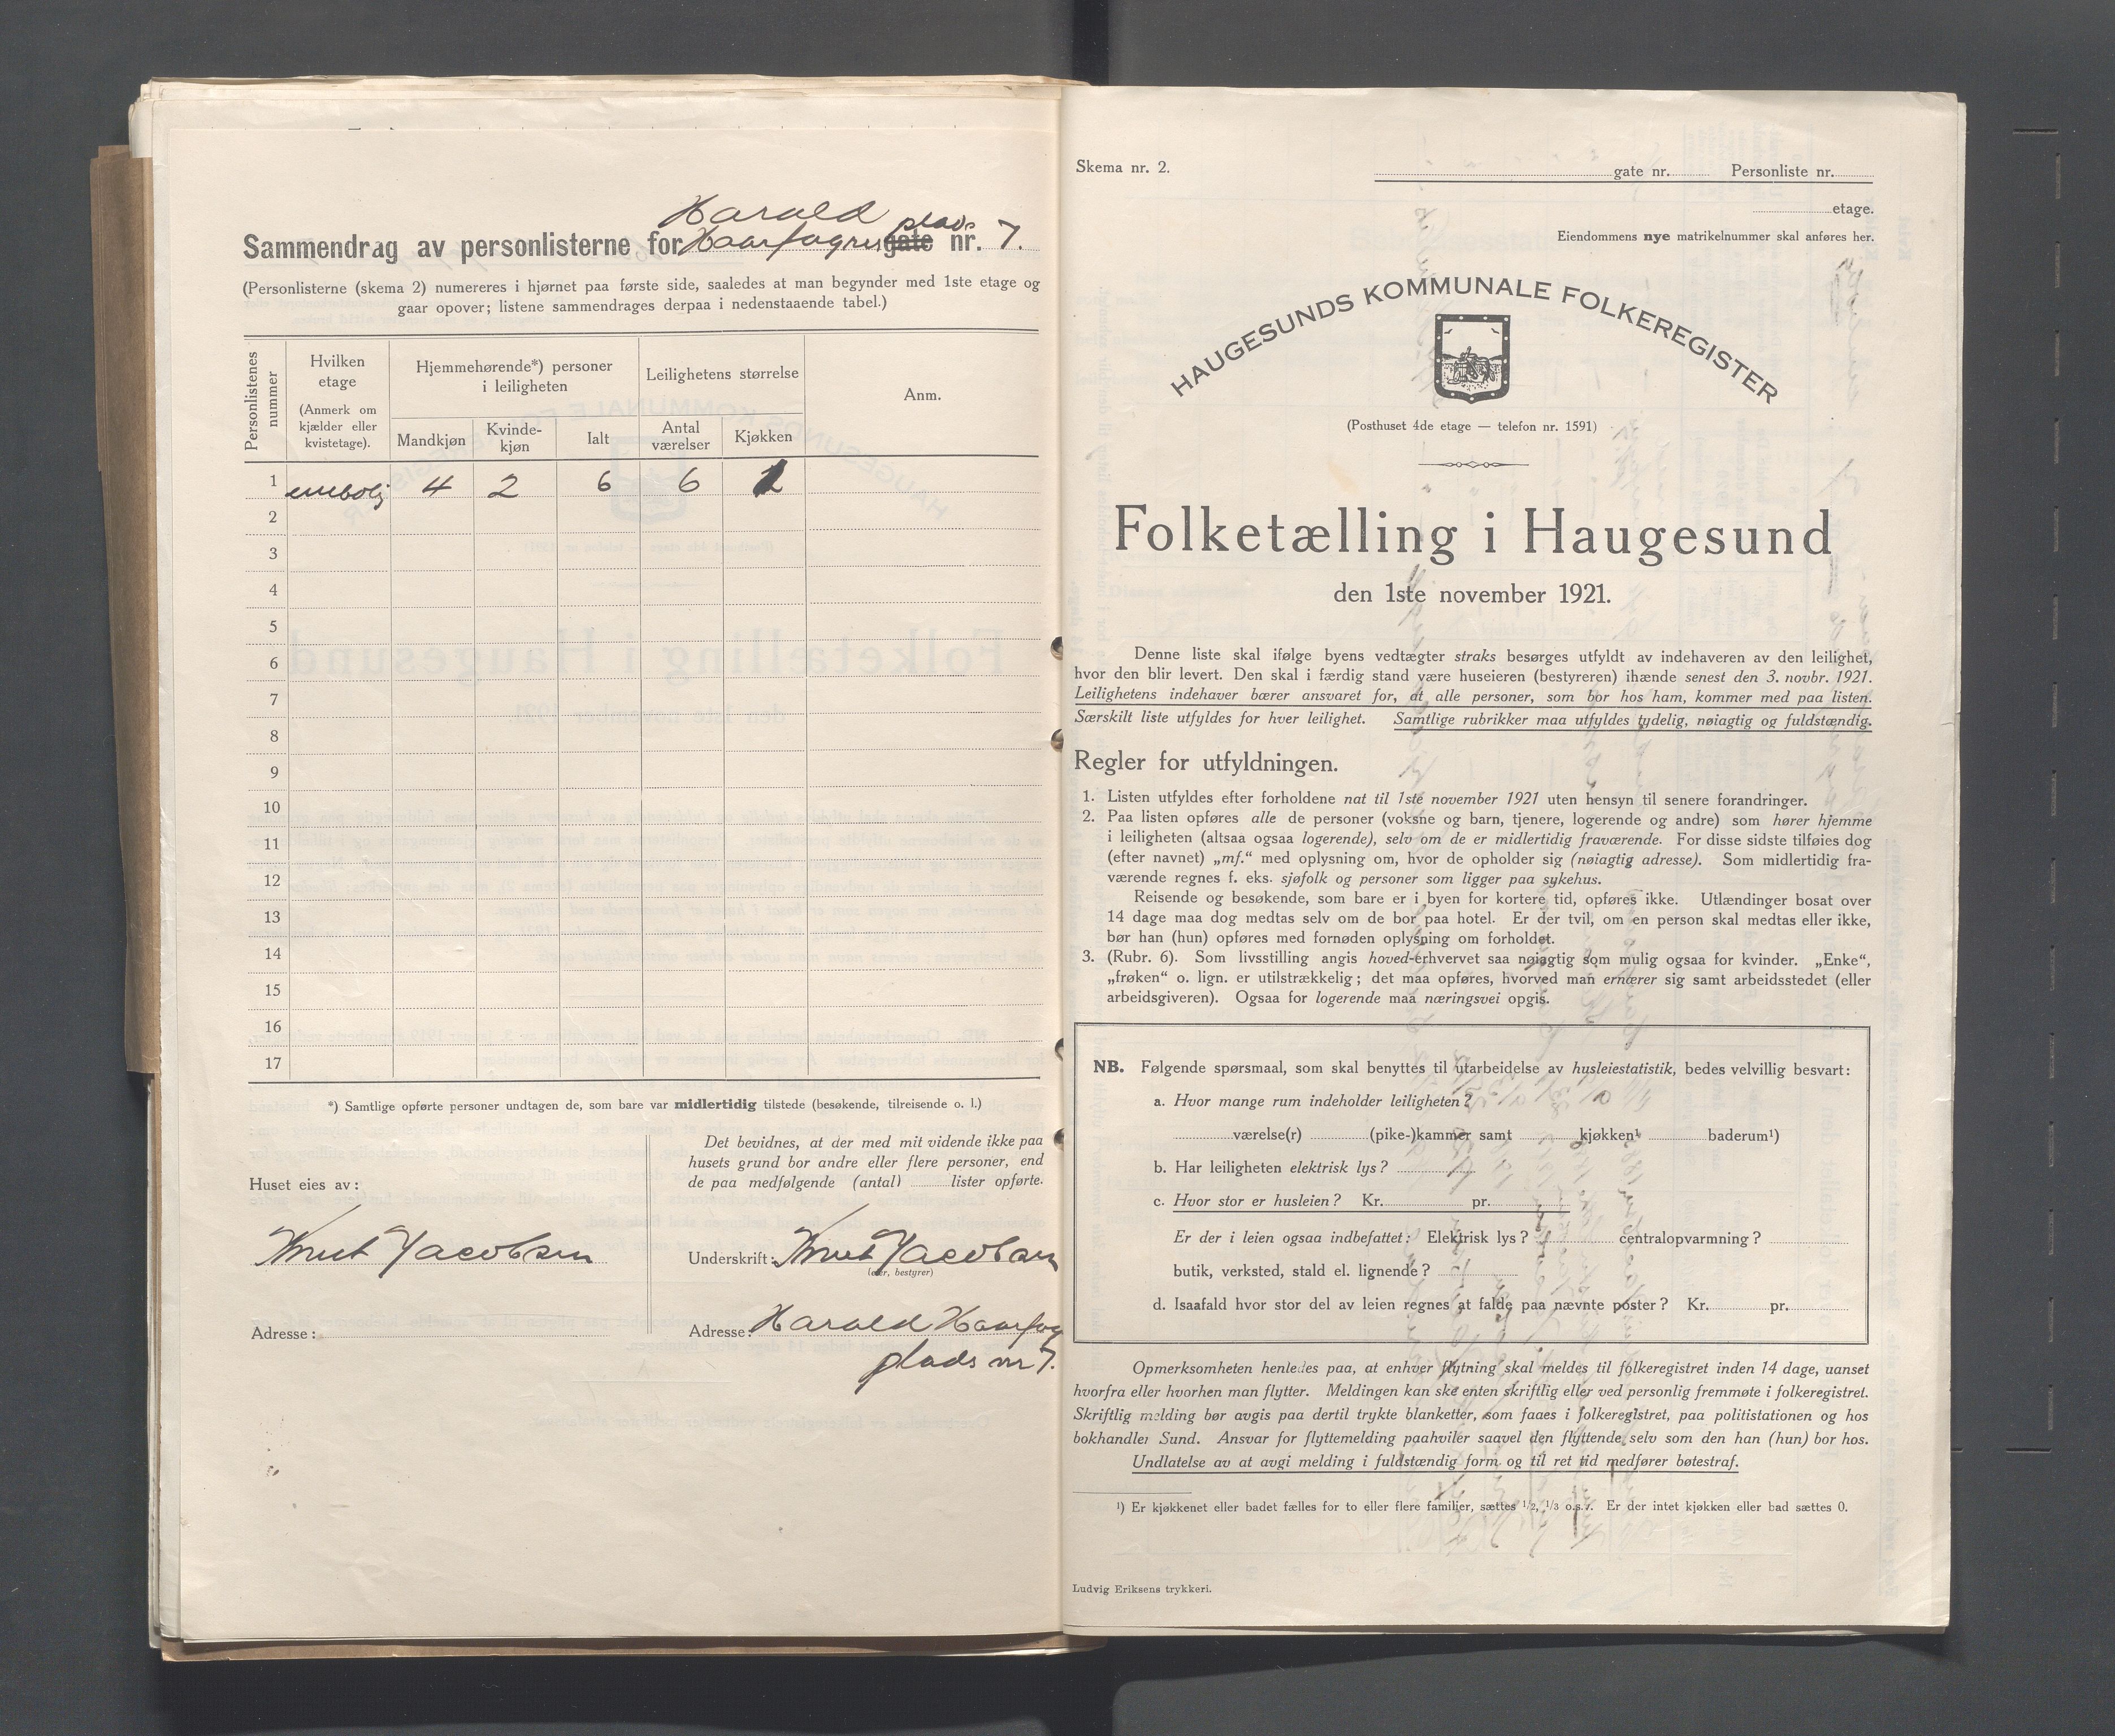 Harald
Sammendrag av personlisterne for Haarfagres gate plads nr. 7.
(Personlisterne (skema 2) numereres i hjørnet paa første side, saaledes at man begynder med 1ste etage og
gaar opover; listene sammendrages derpaa i nedenstaaende tabel.)
Personlistenes nummer
Hvilken etage
(Anmerk om kjælder eller kvistetage).
Hjemmehørende*) personer i leiligheten
Leilighetens størrelse
Anm.
Mandkjøn
Kvinde-kjøn
Ialt
Antal værelser
Kjøkken
1 enebolig 4 2 6 6 1
2
3
4
5
6
7
8
9
10
11
12
13
14
15
16
17
*) Samtlige opførte personer undtagen de, som bare var midlertidig tilstede (besøkende, tilreisende o. l.)
Huset eies av:
Knut Jacobsen
Adresse:
Det bevidnes, at der med mit vidende ikke paa
husets grund bor andre eller flere personer, end
de paa medfølgende (antal) lister opførte.
Underskrift: Knut Jacobsen
(eier, bestyrer)
Adresse: Harald Haarfag
plads nr 7.
Skema nr. 2.
gate nr. Personliste nr.
etage.
Eiendommens nye matrikelnummer skal anføres her.
HAUGESUNDS KOMMUNALE FOLKEREGISTER
(Posthuset 4de etage — telefon nr. 1591)
Folketælling i Haugesund
den 1ste november 1921.
Denne liste skal ifølge byens vedtægter straks besørges utfyldt av indehaveren av den leilighet,
hvor den blir levert. Den skal i færdig stand være huseieren (bestyreren) ihænde senest den 3. novbr. 1921.
Leilighetens indehaver bærer ansvaret for, at alle personer, som bor hos ham, kommer med paa listen.
Særskilt liste utfyldes for hver leilighet. Samtlige rubrikker maa utfyldes tydelig, nøiagtig og fuldstændig.
Regler for utfyldningen.
1. Listen utfyldes efter forholdene nat til 1ste november 1921 uten hensyn til senere forandringer.
2. Paa listen opføres alle de personer (voksne og barn, tjenere, logerende og andre) som hører hjemme
i leiligheten (altsaa ogsaa logerende), selv om de er midlertidig fraværende. For disse sidste tilføies dog
(efter navnet) „mf.“ med oplysning om, hvor de opholder sig (nøiagtig adresse). Som midlertidig fra-
værende regnes f. eks. sjøfolk og personer som ligger paa sykehus.
Reisende og besøkende, som bare er i byen for kortere tid, opføres ikke. Utlændinger bosat over
14 dage maa dog medtas selv om de bor paa hotel. Er der tvil, om en person skal medtas eller ikke,
bør han (hun) opføres med fornøden oplysning om forholdet.
3. (Rubr. 6). Som livsstilling angis hoved-erhvervet saa nøiagtig som mulig ogsaa for kvinder. „Enke“,
„frøken“ o. lign. er utilstrækkelig; det maa opføres, hvorved man ernærer sig samt arbeidsstedet (eller
arbeidsgiveren). Ogsaa for logerende maa næringsvei opgis.
NB. Følgende spørsmaal, som skal benyttes til utarbeidelse av husleiestatistik, bedes velvillig besvart:
a. Hvor mange rum indeholder leiligheten?
værelse(r) (pike-)kammer samt kjøkken¹ baderum¹)
b. Har leiligheten elektrisk lys?
c. Hvor stor er husleien? Kr. pr.
Er der i leien ogsaa indbefattet: Elektrisk lys? centralopvarmning?
butik, verksted, stald el. lignende?
d. Isaafald hvor stor del av leien regnes at falde paa nævnte poster? Kr. pr.
Opmerksomheten henledes paa, at enhver flytning skal meldes til folkeregistret inden 14 dage, uanset
hvorfra eller hvorhen man flytter. Meldingen kan ske enten skriftlig eller ved personlig fremmøte i folkeregistret.
Skriftlig melding bør avgis paa dertil trykte blanketter, som faaes i folkeregistret, paa politistationen og hos
bokhandler Sund. Ansvar for flyttemelding paahviler saavel den flyttende selv som den han (hun) bor hos.
Undlatelse av at avgi melding i fuldstændig form og til ret tid medfører bøtestraf.
¹) Er kjøkkenet eller badet fælles for to eller flere familier, sættes 1/2, 1/3 o.s.v. Er der intet kjøkken eller bad sættes 0.
Ludvig Eriksens trykkeri.